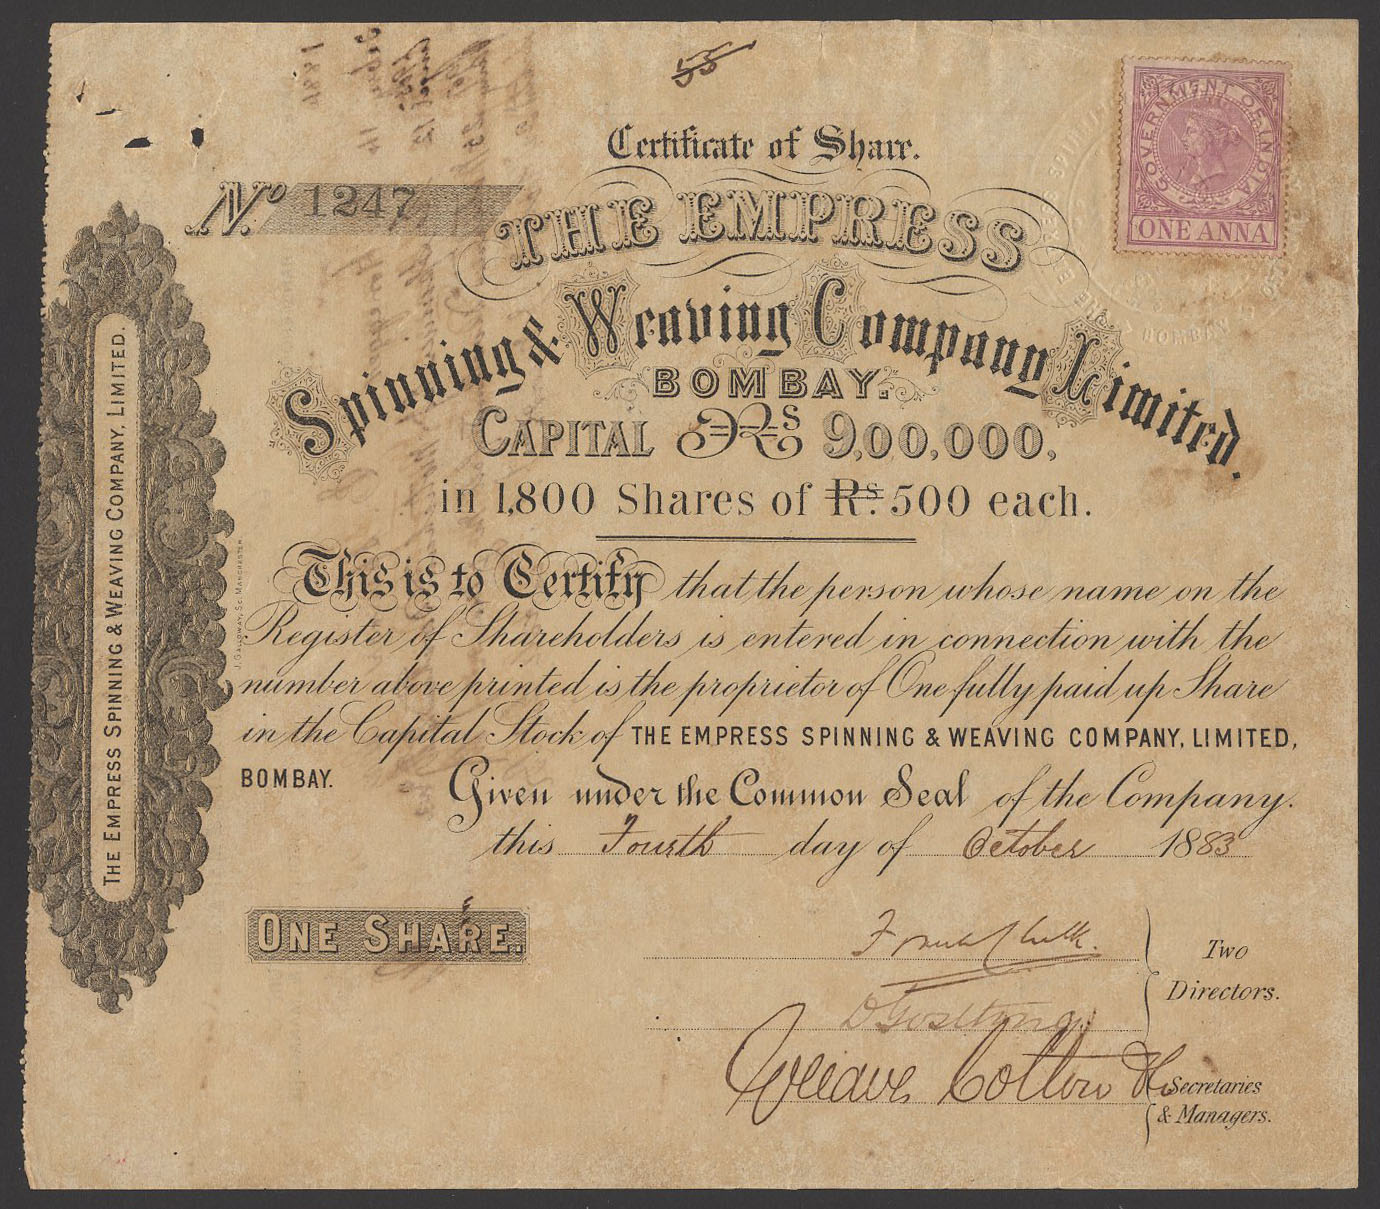 55
Certificate of Share.
No 1247
GOVERNMENT OF INDIA
ONE ANNA
THE EMPRESS
Spinning & Weaving Company Limited.
BOMBAY.
CAPITAL Rs 9,00,000,
in 1,800 Shares of Rs. 500 each.
This is to Certify that the person whose name on the
Register of Shareholders is entered in connection with the
number above printed is the proprietor of One fully paid up Share
in the Capital Stock of THE EMPRESS SPINNING & WEAVING COMPANY, LIMITED,
BOMBAY. Given under the Common Seal of the Company.
this Fourth day of October 1883
ONE SHARE.
Two
Directors.
Secretaries
& Managers.
THE EMPRESS SPINNING & WEAVING COMPANY, LIMITED.
J. GALLOWAY, SC. MANCHESTER.